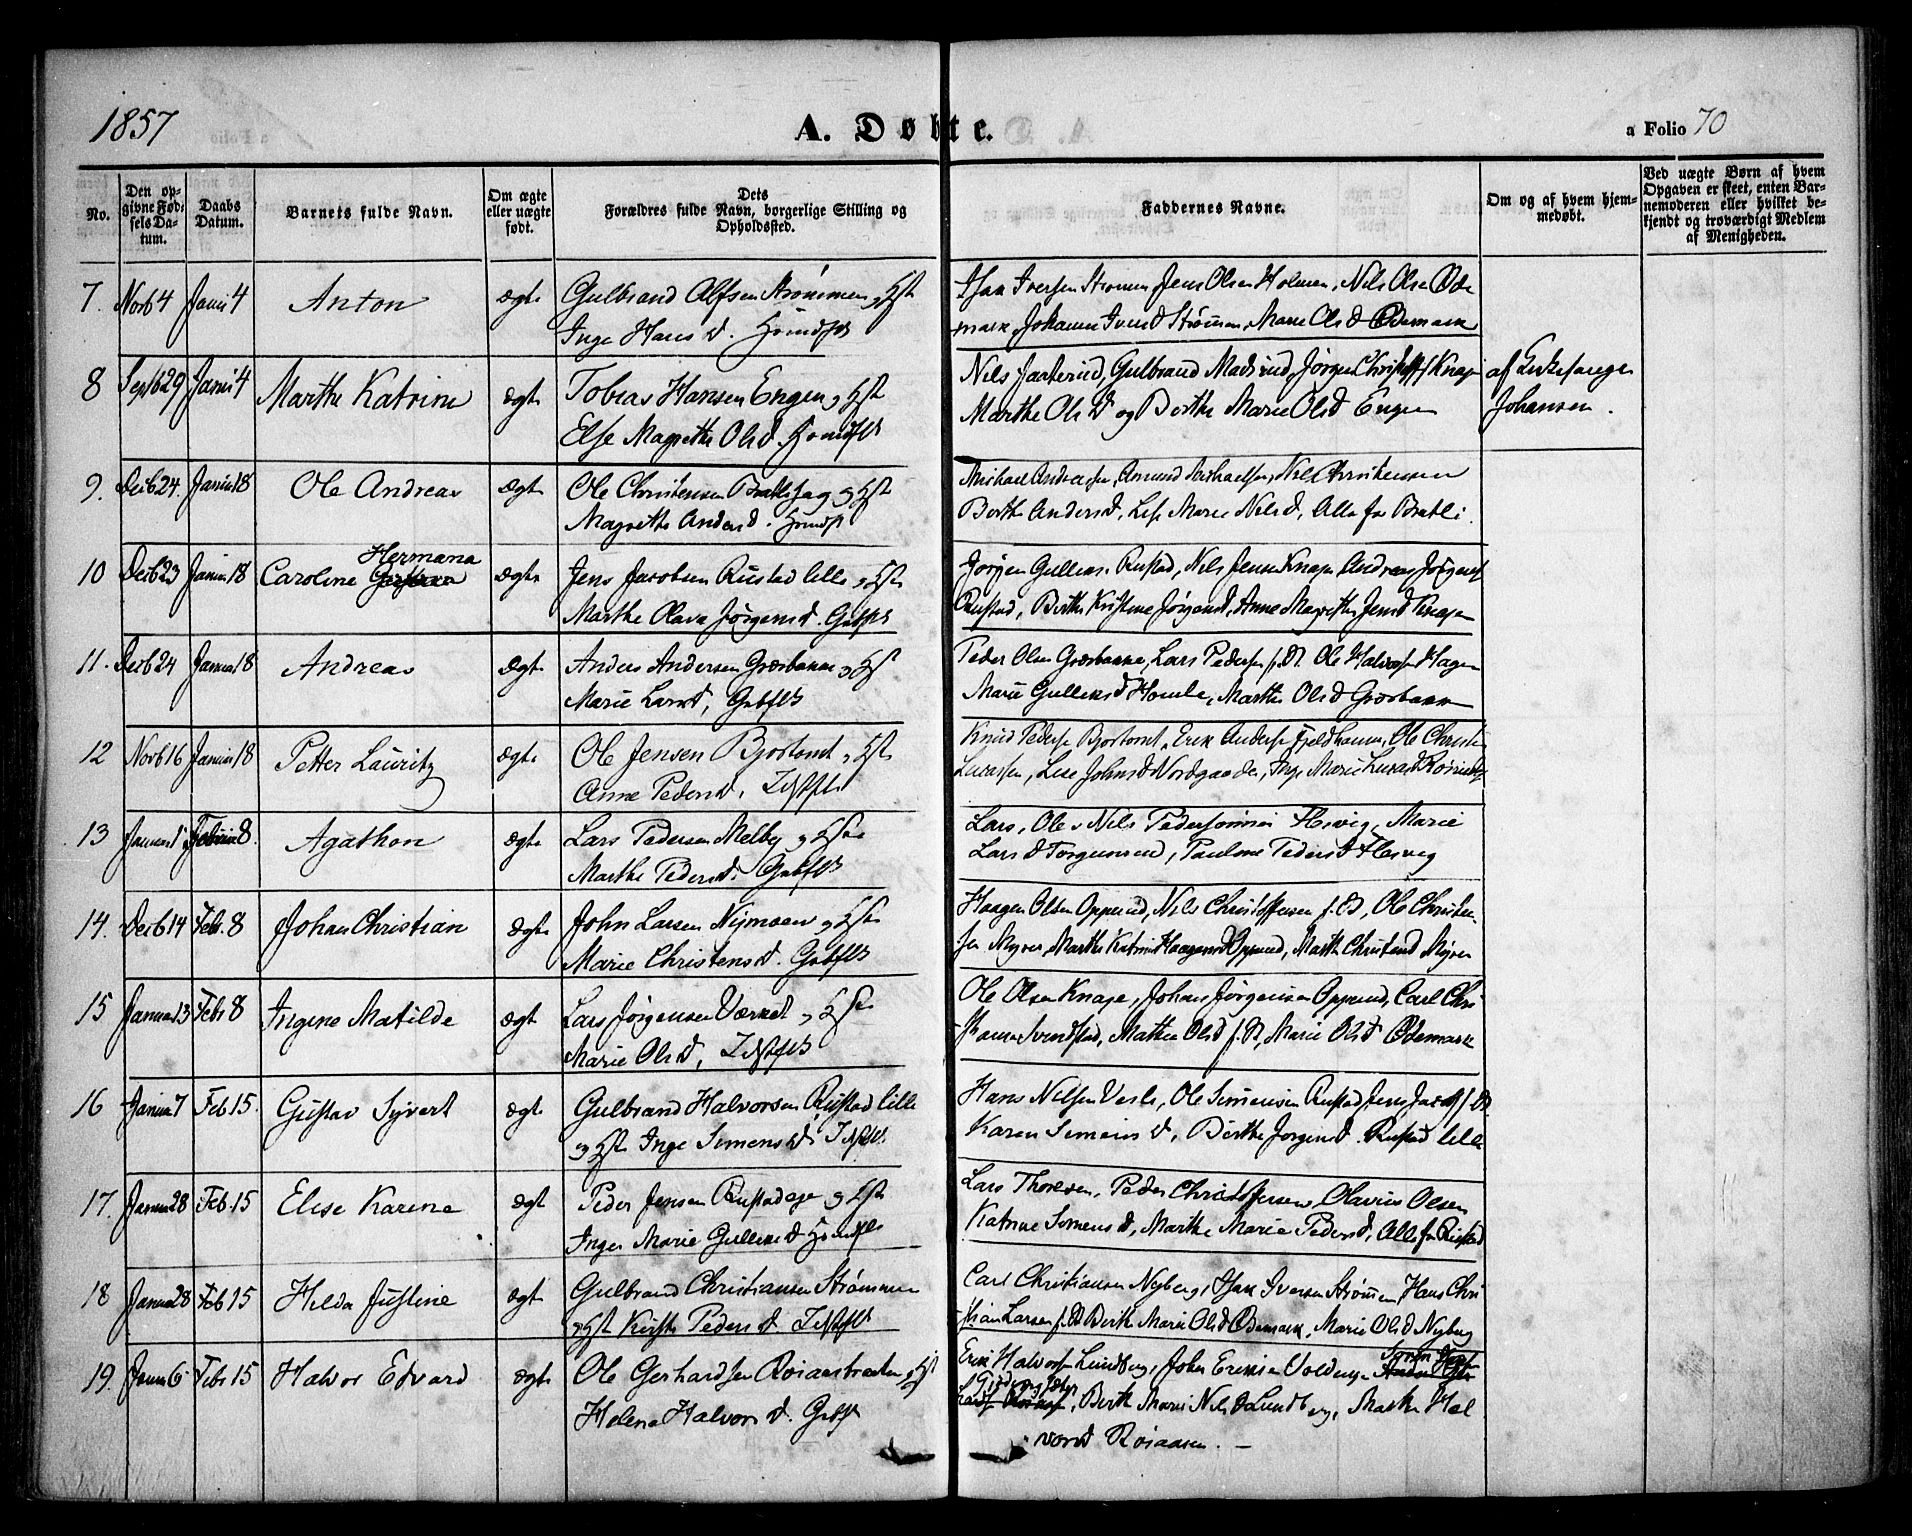 1857
A. Døbte.
a Folio 70
No.
Den op-
givne Fød-
sels Da-
tum.
Daabs
Datum.
Barnets fulde Navn.
Om ægte
eller uægte
født.
Dets
Forældres fulde Navn, borgerlige Stilling og
Opholdssted.
Faddernes Navne.
Om og af hvem hjem-
medøbt.
Ved uægte Børn af hvem
Opgaven er skeet, enten Bar-
nemoderen eller hvilket be-
kjendt og troværdigt Medlem
af Menigheden.
7. Novb 4 Janu 4 Anton ægte Gulbrand Alfsen Strømmen og Hst
Inge Hans D.
Isak Iversen Strømmen, Jens Olsen Holmen, Nils Olsen Ode
mark, Johanne Ivers D Strømen, Marie Ols D Odemark
8 Septb 29 Janu 4 Marthe Katrine ægte Tobias Hansen Engen og Hst
Else Magrethe Ols D.
Nils Jaaterud, Gulbrand Madsrud, Jørgen Christoff Knape
Marthe Ols D og Berthe Marie Ols D Engen
af Kirkesanger
Johansen.
9. Decb 24. Janu 18 Ole Andreas ægte Ole Christensen og Hst
Magrethe Anders D.
Michael Andreassen, Amund Michaelsen, Nils Christensen
Berthe Anders D, Lise Marie Nils D, Alle fra Bratli.
Hermana
10 Decb 23 Janu 18 Caroline ægte Jens Jacobsen Rustad lille og Hst
Marthe Olava Jørgens D. Gbfk
Jørgen Gulliks. Rustad, Nils Jensen Knape, Andreas Jørgens
Rustad, Berthe Kristine Jørgens D, Anne Magrethe Jens D Knape
11. Decb 24 Janu 18 Andreas ægte Anders Andersen Græsbakke og Hst
Marie Lars D, Gbfk
Peder Olsen Græsbakke, Lars Pedersen f. St. Ole Halvorsen Hagen
Marie Gulliks D Homle, Marthe Ols D Græsbakk
12 Novb 16 Janu 18 Petter Lauritz ægte Ole Jensen Bjortomt og Hst
Anne Peders D.
Knud Peders Bjortomt, Erik Anders Fjeldhammer, Ole Christi
Lucassen, Lise Johns D Nordgaarden, Inge Marie Lucas D
13 Januar 1 Februar 8. Agathon ægte Lars Pedersen Melby og Hst
Marthe Peders D. Gbfk
Lars, Ole, Nils Pedersønner Hesvig, Marie
Lars D Torgunrud, Pauline Peders D Hesvig
14. Decb 14 Feb. 8 Johan Christian ægte John Larsen Nymoen og Hst
Marie Christens D. Gbfk
Haagen Olsen Opperud, Nils Christoffersen f. St, Ole Christen-
sen Myrer, Marthe Katrine Haagens D Opperud, Marthe Christens D Myrer
15 Januar 13 Feb 8 Ingine Matilde ægt Lars Jørgensen Værket og Hst
Marie Ols D,
Ole Olsen Knape, Johan Jørgensen Opperud, Carl Chri-
stiansen Svendstad, Mathea Ols D f. St, Marie Ols D Odemark
16 Janua 7 Feb 15. Gustav Syvert ægte Gulbrand Halvorsen Rustad lille
og Hst Inge Simens D.
Hans Nilsen Vesle, Ole Simensen Rustad, Jens Jacobs f St
Karen Simens D, Berthe Jørgens D. Rustad lille
17. Januar 28 Feb. 15 Elise Karine ægt Peder Jensen Rustadeje og Hst
Inger Marie Gulliks D
Lars Thoresen, Peder Christoffersen, Olavius Olsen
Katrine Simens D, Marthe Marie Peders D, Alle fra Rustad
18 Januar 28 Feb 15 Hilda Justine ægt Gulbrand Christiansen Strømmen
og Hst Kirsti Peders D.
Carl Christiansen Nyberg, Isak Iversen Strømen, Hans Chri
stian Larsen f. St Berthe Marie Ols D Odemark, Marie Ols D Nyberg
19. Janu 6 Feb 15 Halvor Edvard ægt Ole Gerhardsen Røiaasbraaten og Hst
Helena Halvors D. Gbfk
Erik Halvorsen Lundberg, John Eriksen
Berthe Marie Nils D Lundberg, Marthe Hal
vors D Røiaasen. —